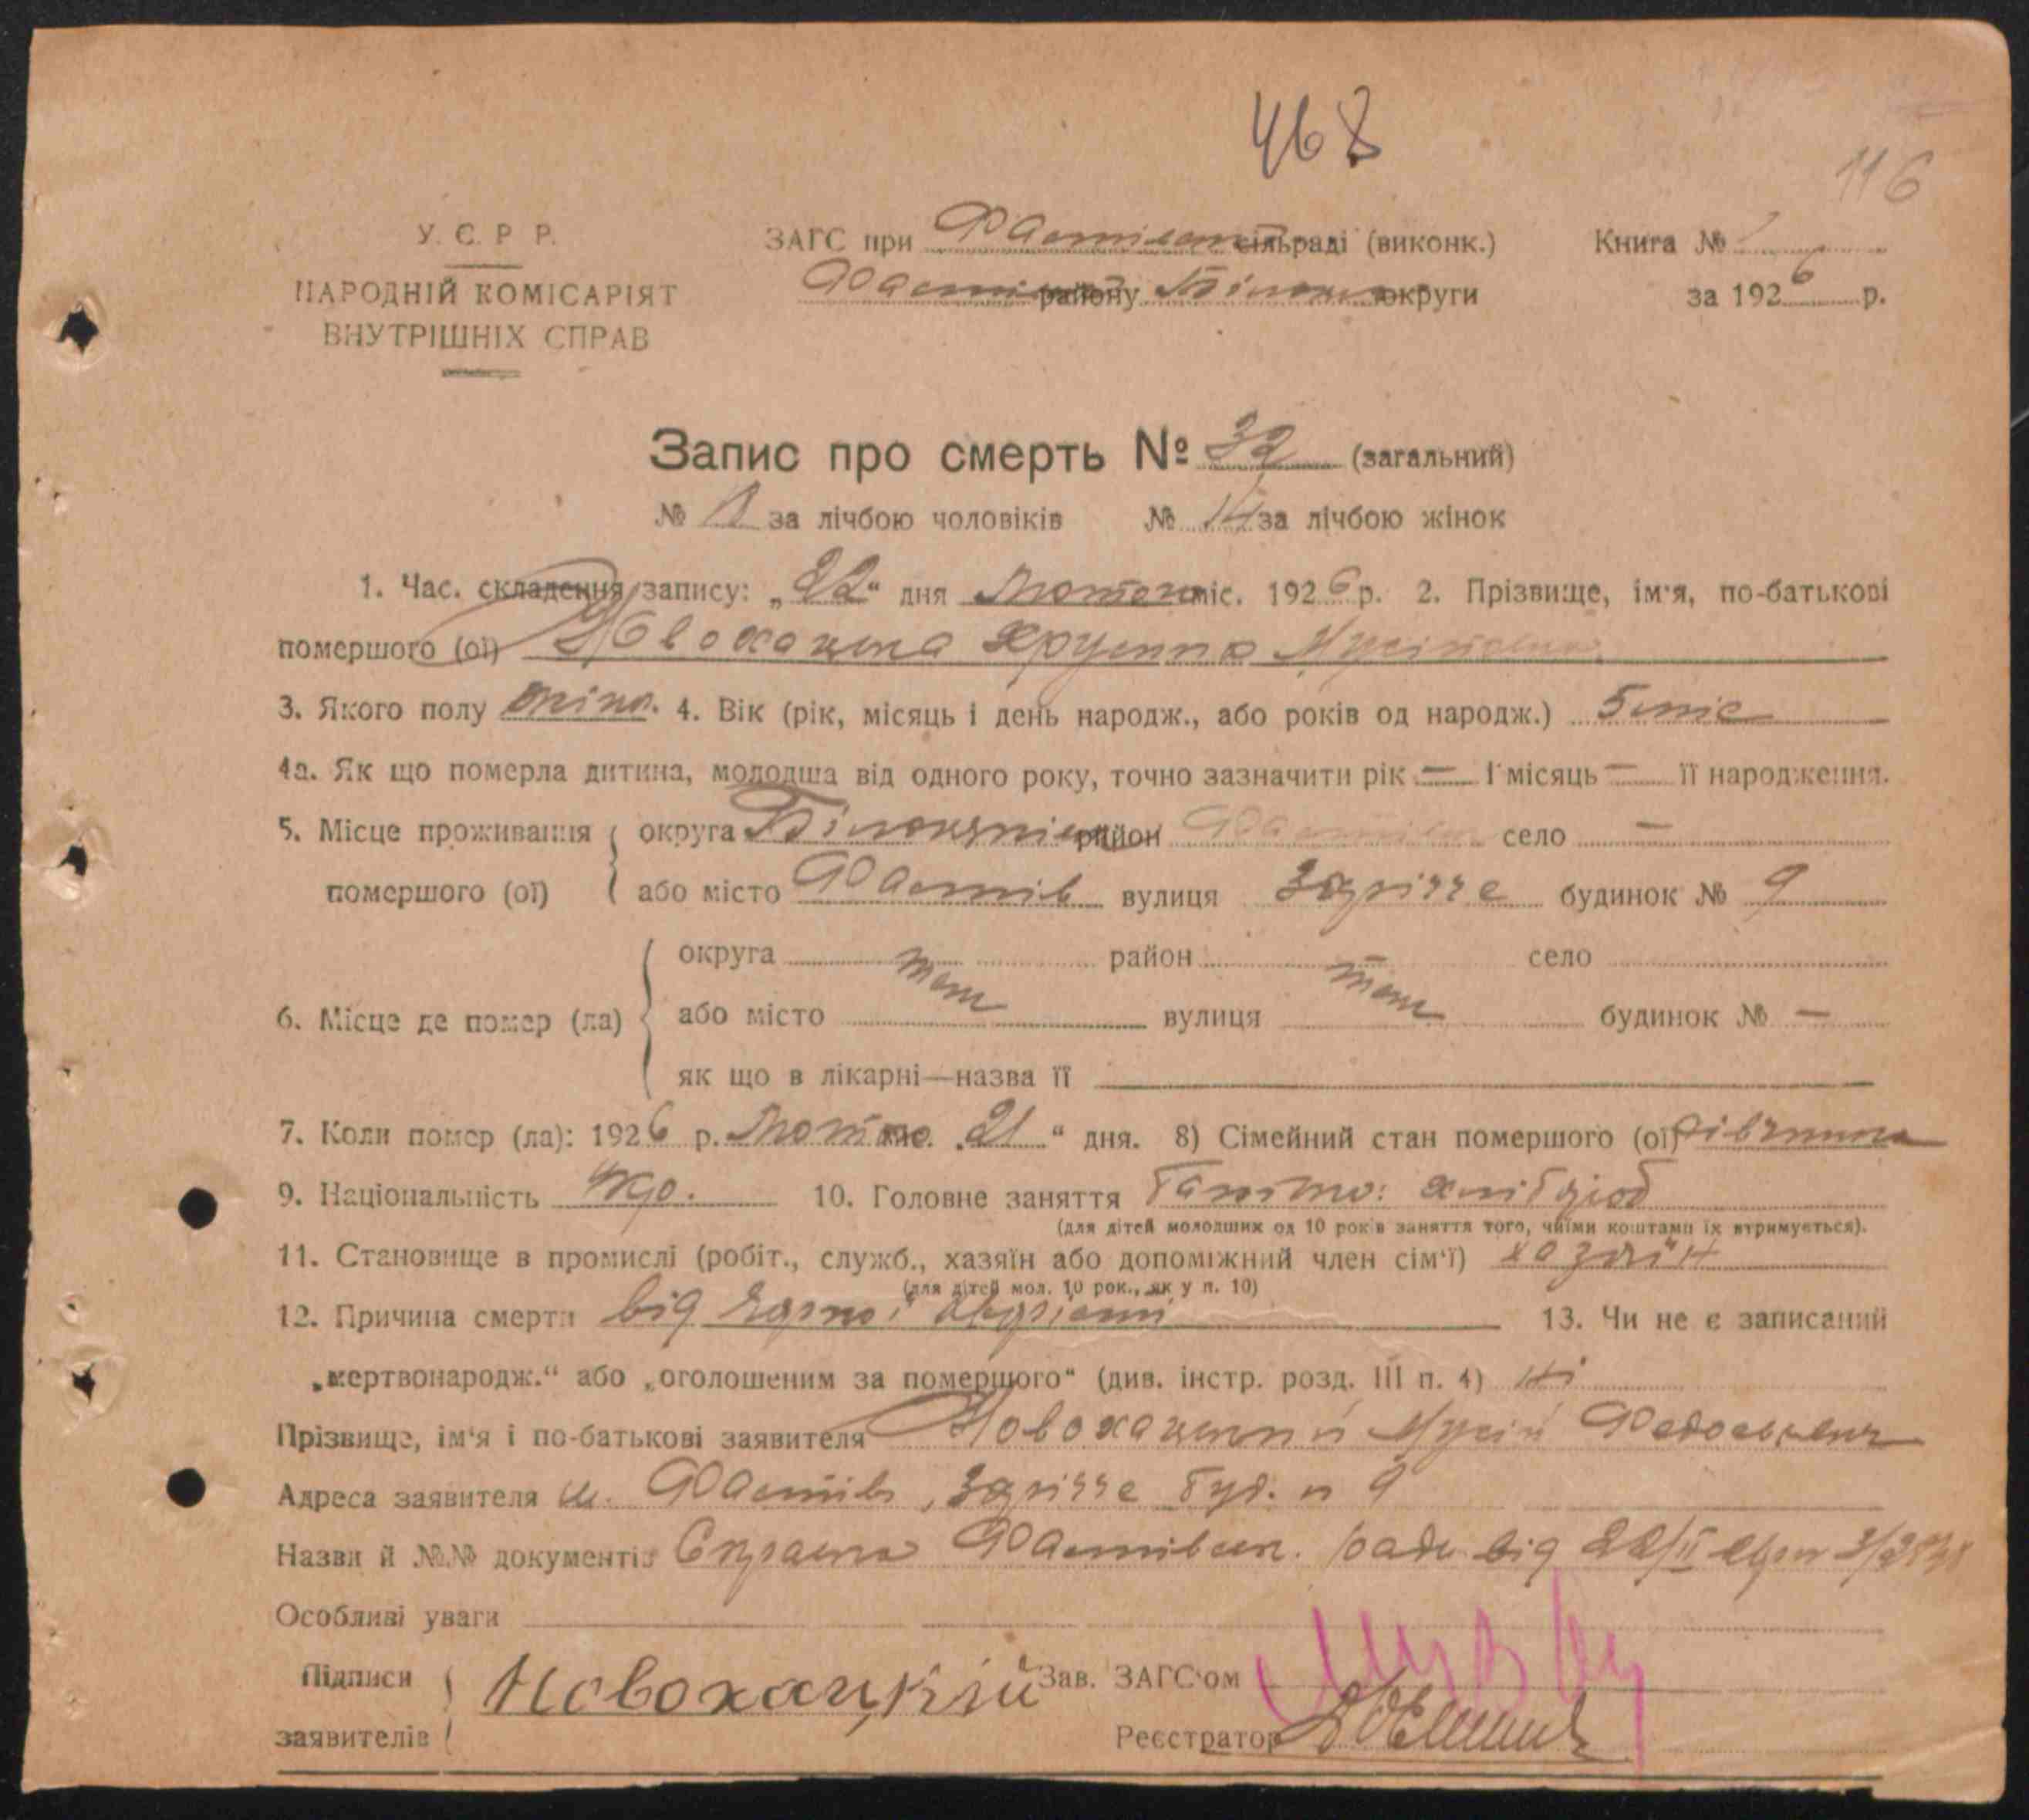 468
116
У. С. Р. Р.
НАРОДНІЙ КОМІСАРІЯТ
ВНУТРІШНІХ СПРАВ
ЗАГС при сільраді (виконк.)
району округи
Книга №
за 1926 р.
Запис про смерть № 32 (загальний)
№ за лічбою чоловіків № 14 за лічбою жінок
1. Час. складення запису: „22“ дня міс. 1926 р. 2. Прізвище, ім'я, по-батькові
помершого (ої) Новохацка
3. Якого полу жіно. 4. Вік (рік, місяць і день народж., або років од народж.) 5
4а. Як що померла дитина, молодша від одного року, точно зазначити рік — і місяць — її народження.
5. Місце проживання округа район село —
помершого (ої) або місто Фастів вулиця Заріччє будинок № 9
округа там район там село
6. Місце де помер (ла) або місто вулиця будинок № —
як що в лікарні—назва її
7. Коли помер (ла): 1926 р. міс. „21“ дня. 8) Сімейний стан помершого (ої) дівчина
9. Національність Укр. 10. Головне заняття хлібороб
(для дітей молодших од 10 років заняття того, чиїми коштами їх втримується).
11. Становище в промислі (робіт., служб., хазяїн або допоміжний член сім'ї) хазяїн
(для дітей мол. 10 рок., як у п. 10)
12. Причина смерти від 13. Чи не є записаний
„мертвонародж.“ або „оголошеним за померщого“ (див. інстр. розд. III п. 4) ні
Прізвище, ім'я і по-батькові заявителя Новохацкий Мусій
Адреса заявителя м. Фастів, Заріччє буд. н 9
Назви й №№ документів Фастівськ. Ради від 22/II
Особливі уваги
Підписи
заявителів
Новохацкій
Зав. ЗАГС'ом
Реєстратор